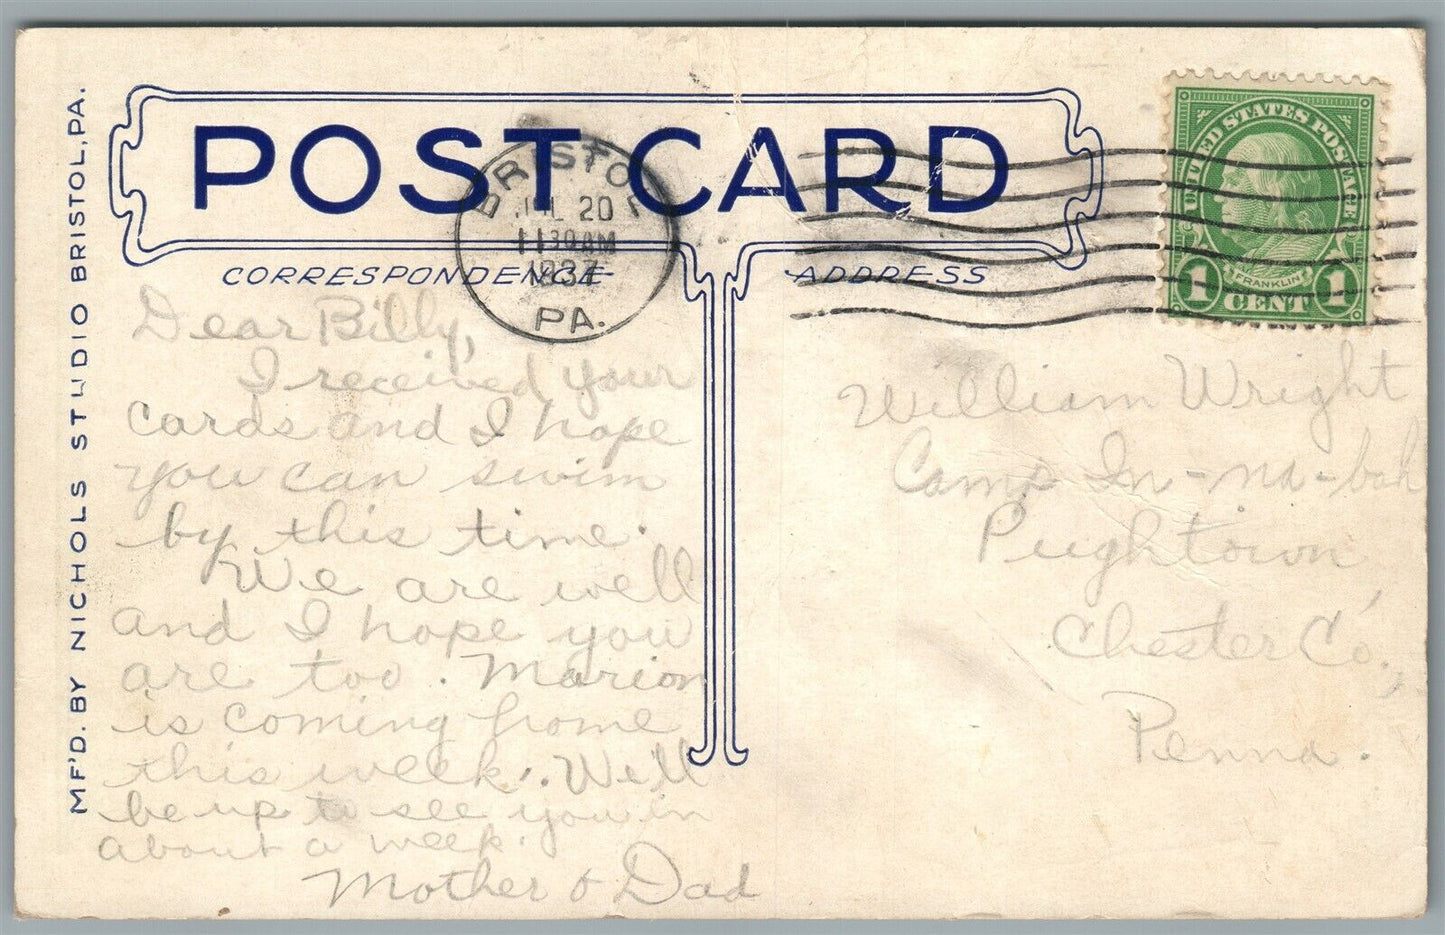 MF'D. BY NICHOLS STUDIO BRISTOL, PA.
POST CARD
CORRESPONDENCE
ADDRESS
BRISTOL
JUL 20
11 30 AM
1937
PA.
UNITED STATES POSTAGE
FRANKLIN
1 CENT 1
Dear Billy,
I received your
cards and I hope
you can swim
by this time.
We are well
and I hope you
are too. Marion
is coming home
this week. We'll
be up to see you in
about a week.
Mother & Dad
William Wright
Camp In-na-bah
Pughtown
Chester Co.,
Penna.